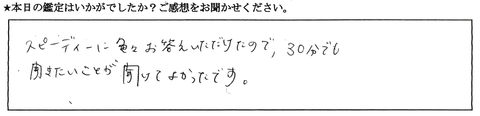 ★本日の鑑定はいかがでしたか？ご感想をお聞かせください。
スピーディーに色々お答えいただけたので、30分でも
聞きたいことが聞けてよかったです。